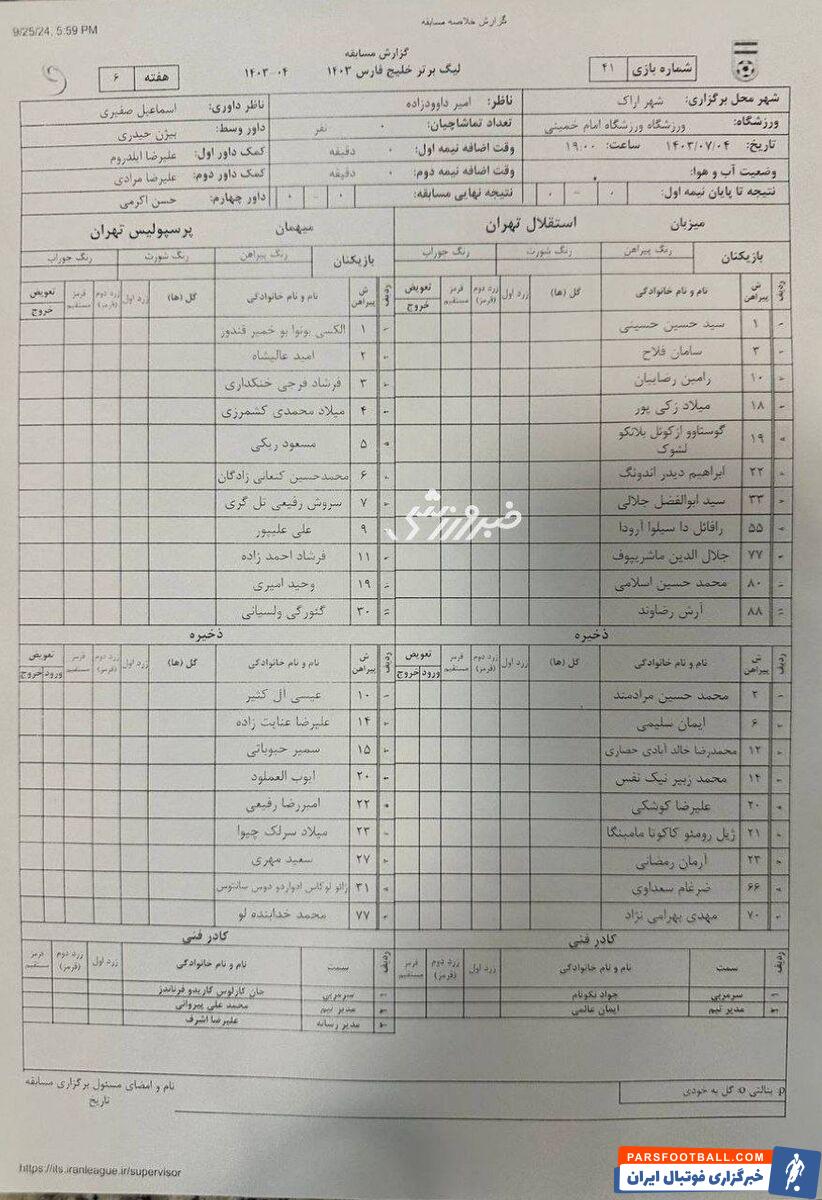 9/25/24, 5:59 PM
گزارش خلاصه مسابقه
گزارش مسابقه
لیگ برتر خلیج فارس ۱۴۰۳ ۰۴-۱۴۰۳
شماره بازی ۴۱
هفته ۶
شهر محل برگزاری: شهر اراک
ناظر: امیر داوودزاده
ناظر داوری: اسماعیل صفیری
ورزشگاه: ورزشگاه ورزشگاه امام خمینی
تعداد تماشاچیان: ۰ نفر
داور وسط: بیژن حیدری
تاریخ: ۱۴۰۳/۰۷/۰۴ ساعت: ۱۹:۰۰
وقت اضافه نیمه اول: ۰ دقیقه
کمک داور اول: علیرضا ایلدروم
وضعیت آب و هوا:
وقت اضافه نیمه دوم: ۰ دقیقه
کمک داور دوم: علیرضا مرادی
نتیجه تا پایان نیمه اول: ۰ – ۰
نتیجه نهایی مسابقه: ۰ – ۰
داور چهارم: حسن اکرمی
میزبان استقلال تهران
بازیکنان رنگ پیراهن رنگ شورت رنگ جوراب
ردیف ش پیراهن نام و نام خانوادگی گل (ها) زرد اول زرد دوم (قرمز) قرمز مستقیم تعویض خروج
۱ سید حسین حسینی
۳ سامان فلاح
۱۰ رامین رضاییان
۱۸ میلاد زکی پور
۱۹ گوستاوو ازکوئل بلانکو
لشوک
۲۲ ابراهیم دیدر اندونگ
۳۳ سید ابوالفضل جلالی
۵۵ رافائل دا سیلوا آرودا
۷۷ جلال الدین ماشریپوف
۸۰ محمد حسین اسلامی
۸۸ آرش رضاوند
ذخیره
ردیف ش پیراهن نام و نام خانوادگی گل (ها) زرد اول زرد دوم (قرمز) قرمز مستقیم تعویض ورود خروج
۲ محمد حسین مرادمند
۶ ایمان سلیمی
۱۲ محمدرضا خالد آبادی حصاری
۱۴ محمد زبیر نیک نفس
۲۰ علیرضا کوشکی
۲۱ ژیل رومئو کاکوتا مامبنگا
۲۳ آرمان رمضانی
۶۶ ضرغام سعداوی
۷۰ مهدی بهرامی نژاد
کادر فنی
ردیف سمت نام و نام خانوادگی زرد اول زرد دوم (قرمز) قرمز مستقیم
۱ سرمربی جواد نکونام
۲ مدیر تیم ایمان عالمی
میهمان پرسپولیس تهران
بازیکنان رنگ پیراهن رنگ شورت رنگ جوراب
ردیف ش پیراهن نام و نام خانوادگی گل (ها) زرد اول زرد دوم (قرمز) قرمز مستقیم تعویض خروج
۱ الکسی بونوا یو خمیر قندوز
۲ امید عالیشاه
۳ فرشاد فرجی خنکداری
۴ میلاد محمدی کشمرزی
۵ مسعود ریگی
۶ محمدحسین کنعانی زادگان
۷ سروش رفیعی تل گری
۹ علی علیپور
۱۱ فرشاد احمد زاده
۱۹ وحید امیری
۳۰ گئورگی ولسیانی
ذخیره
ردیف ش پیراهن نام و نام خانوادگی گل (ها) زرد اول زرد دوم (قرمز) قرمز مستقیم تعویض ورود خروج
۱۰ عیسی ال کثیر
۱۴ علیرضا عنایت زاده
۱۵ سمیر حبوباتی
۲۰ ایوب العملود
۲۲ امیررضا رفیعی
۲۳ میلاد سرلک چیوا
۲۷ سعید مهری
۳۱ ژائو لوکاس ادواردو دوس سانتوس
۷۷ محمد خدابنده لو
کادر فنی
ردیف سمت نام و نام خانوادگی زرد اول زرد دوم (قرمز) قرمز مستقیم
۱ سرمربی خان کارلوس گاریدو فرناندز
۲ مدیر تیم محمد علی پیروانی
۳ مدیر رسانه علیرضا اشرف
p: پنالتی o: گل به خودی
نام و امضای مسئول برگزاری مسابقه
تاریخ
خبرورزشی
https://its.iranleague.ir/supervisor
PARSFOOTBALL.COM
خبرگزاری فوتبال ایران